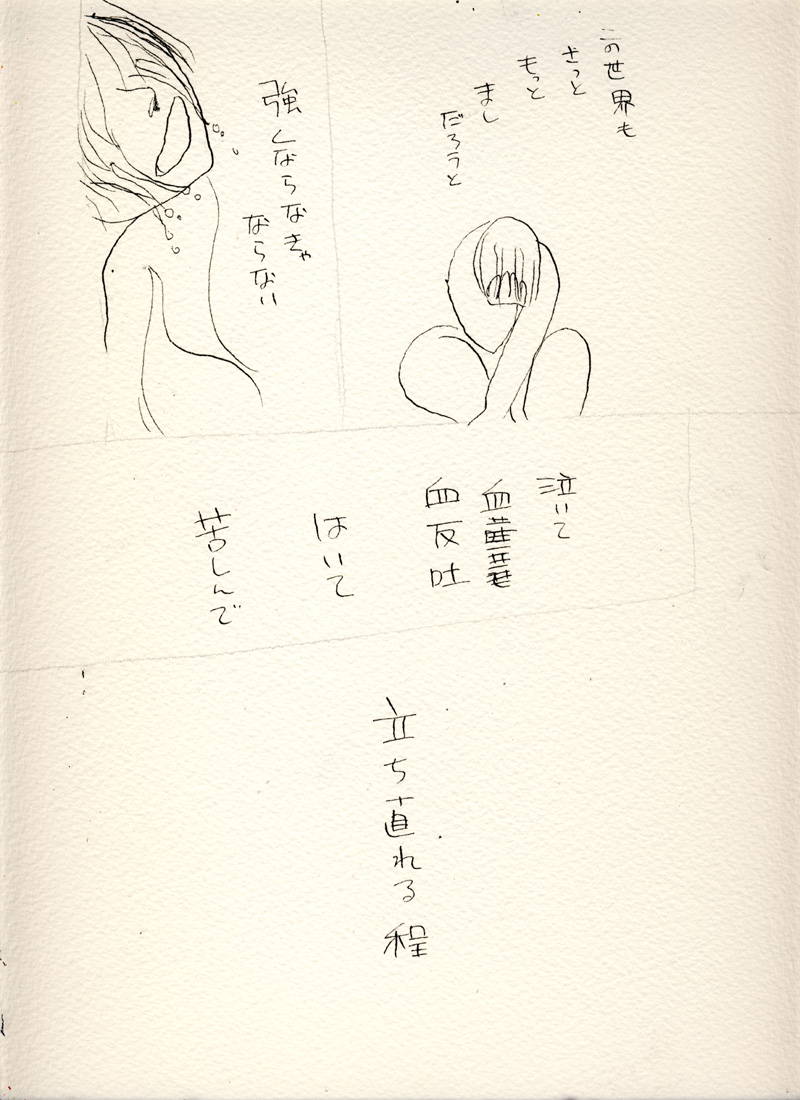 この世界も
きっと
もっと
まし
だろうと
強くならなきゃ
ならない
泣いて
血反吐
はいて
苦しんで
立ち直れる程